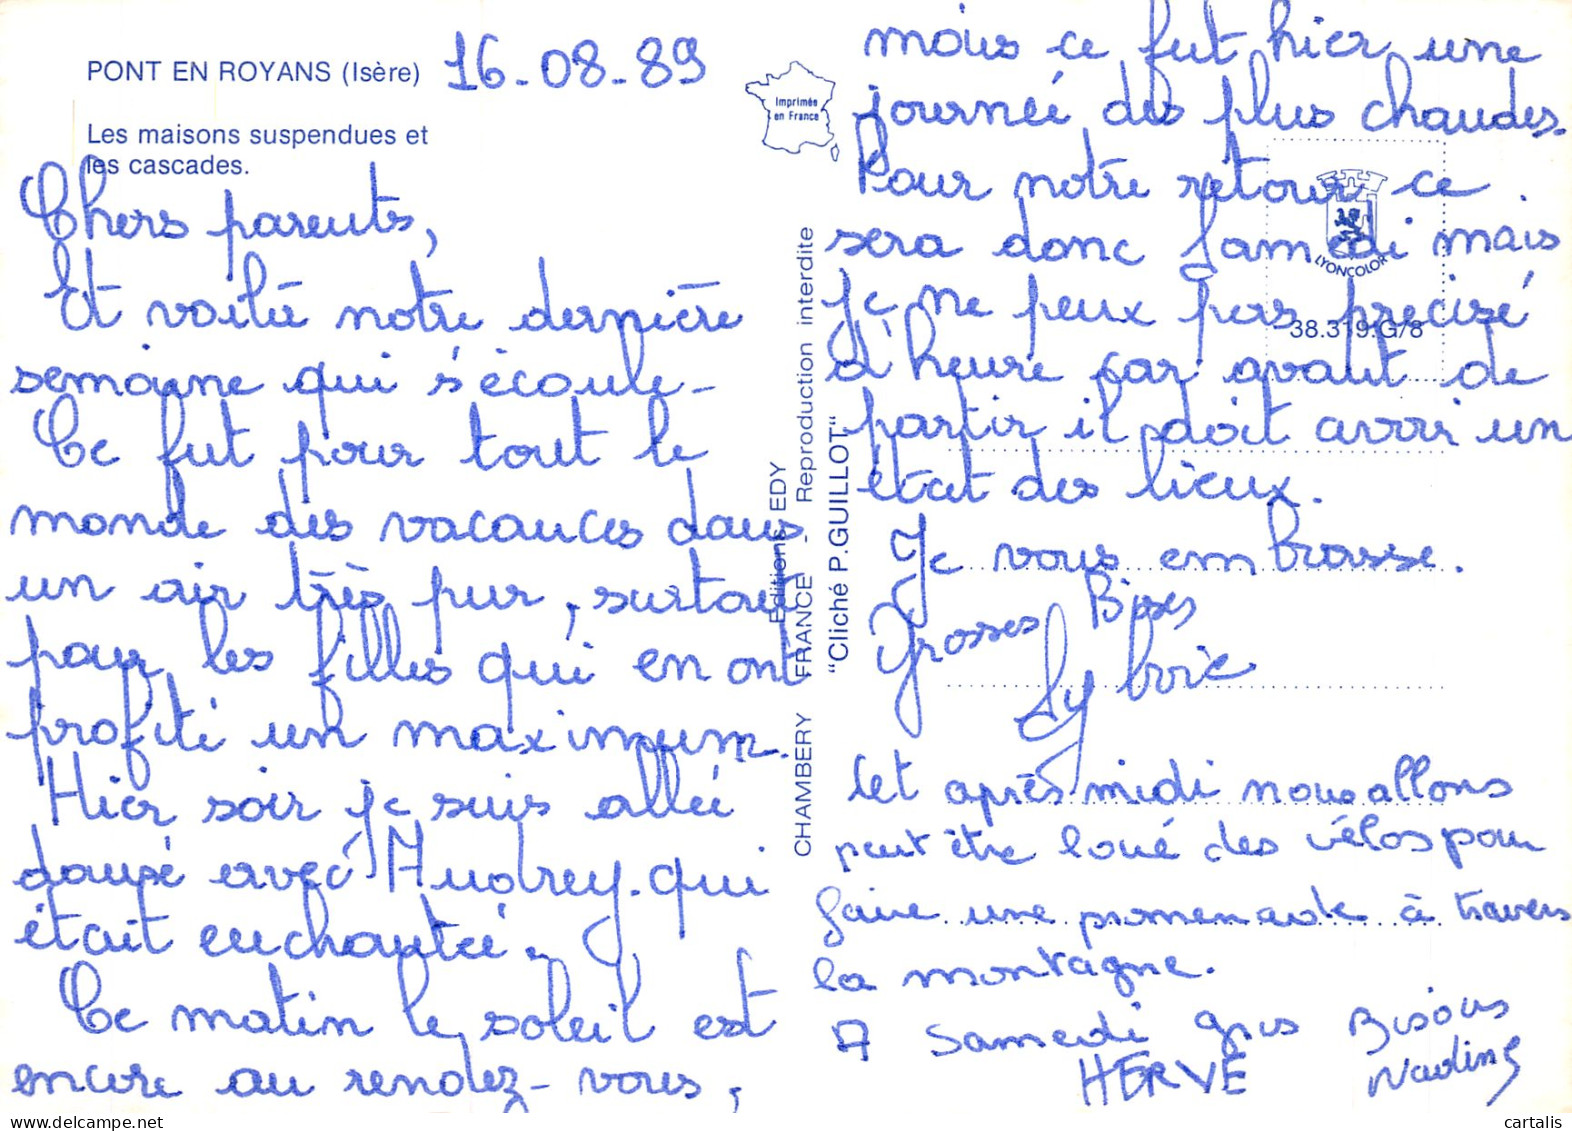 PONT EN ROYANS (Isère) 16-08-89
Les maisons suspendues et
les cascades.
Chers parents,
Et voilà notre dernière
semaine qui s'écoule-
Ce fut pour tout le
monde des vacances dans
un air très pur, surtout
pour les filles qui en ont
profité un maximum.
Hier soir je suis allée
dansé avec Audrey qui
était enchantée.
Ce matin le soleil est
encore au rendez-vous,
Imprimée
en France
Editions EDY
CHAMBERY FRANCE - Reproduction interdite
"Cliché P.GUILLOT"
LYONCOLOR
38.319.G/8
mais ce fut hier une
journée des plus chaudes.
Pour notre retour ce
sera donc samedi mais
je ne peux pas precisé
d'heure car avant de
partir il doit avoir un
état des lieux.
Je vous embrasse.
Grosses Bises
Sylvie
Cet après midi nous allons
peut être loué des vélos pour
faire une promenade à travers
la montagne.
A Samedi gros Bisous
HERVE Nadine
cartalis